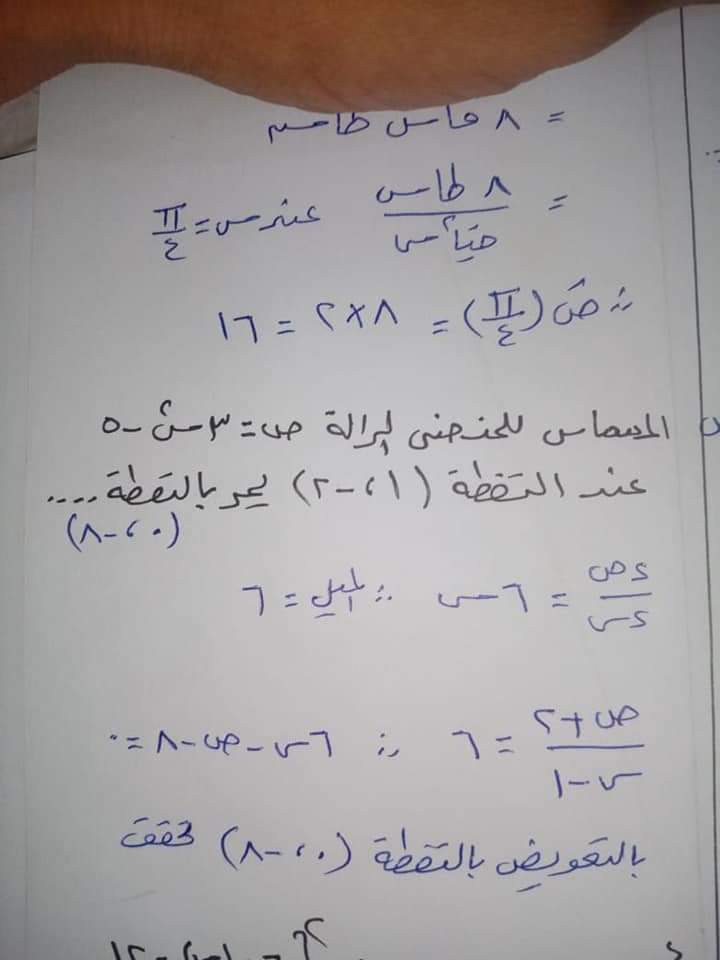 = ٨ قاس ظاس
= ٨ طاس / حتا٢س عند س = π/٤
∴ صَ (π/٤) = ٨ × ٢ = ١٦
س المماس للمنحنى لدالة ص = ٣س٢ - ٥
عند النقطة (١، -٢) يمر بالنقطة ....
(٠، -٨)
ءص / ءس = ٦س ∴ الميل = ٦
ص + ٢ / س - ١ = ٦ ∴ ٦س - ص - ٨ = ٠
بالتعويض بالنقطة (٠، -٨) تحقق